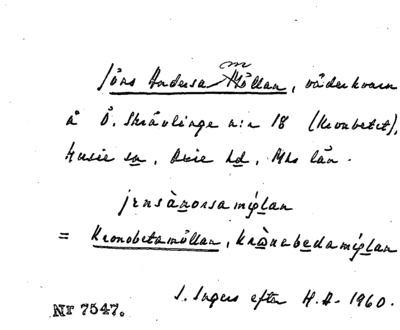 Jöns Andersa Möllan, väderkvarn
å Ö. Skrävlinge n:r 18 (Kronbetet),
Husie sn, Oxie hd, Mhs län.
jensànorsamǿlan
= Kronobetamöllan, krànabedamǿlan
S. Ingers efter H.A. 1960.
Nr 7547.